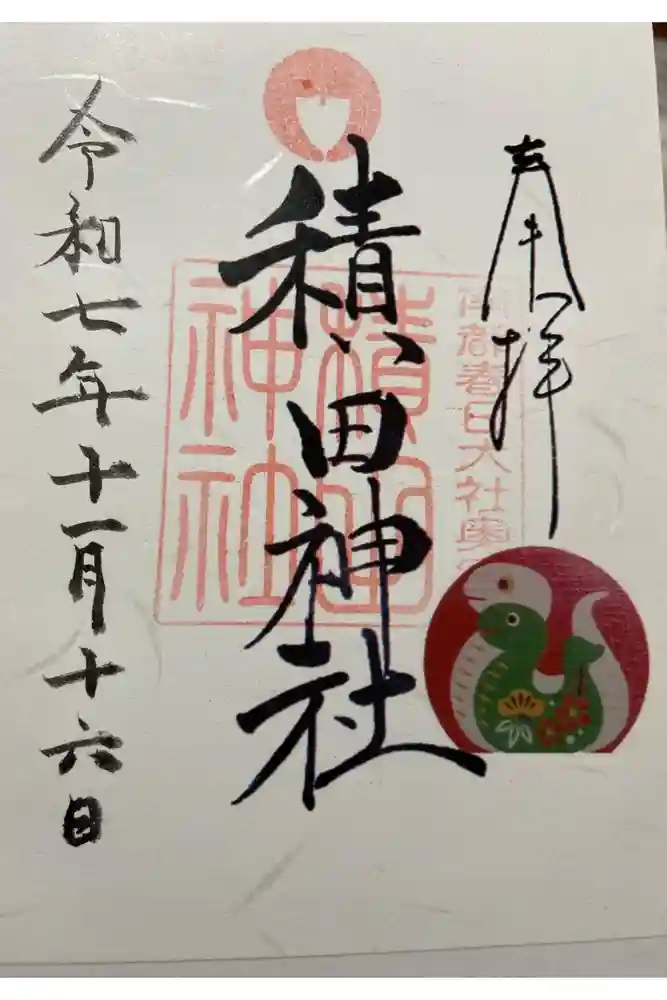 奉拝
南都春日大社奥
積田神社
積田神社
令和七年十一月十六日